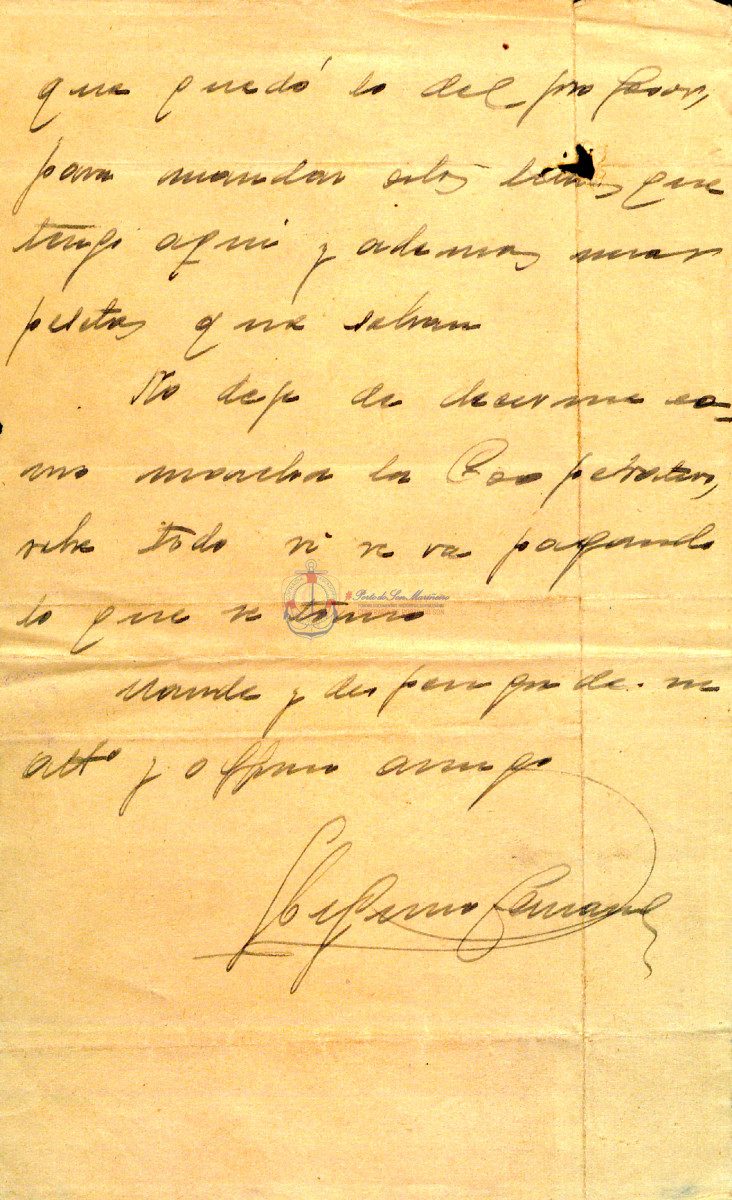 que quedó lo del profesor,
para mandar estos que
tengo aqui y ademas unas
pesetas que sobran
No deje de decirme co-
mo marcha la Cooperativa,
sobre todo si se va pagando
lo que se toma
Mande y disponga de su
atto y affmo amigo
Ceferino
Porto do Son Mariñeiro